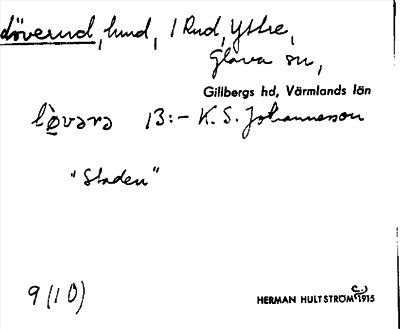 döverud, lund, i Rud, Yttre,
Glava sn,
Gillbergs hd, Värmlands län
lò̱vərə 13:– K. S. Johannesson
"Staden"
9 (10)
HERMAN HULTSTRÖM C:a 1915